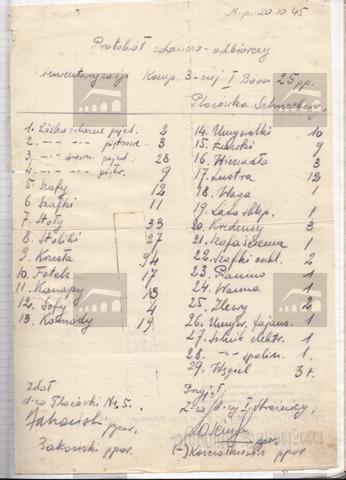 M.p. 20.10.45
Protokół zdawczo-odbiorczy
inwentaryzacji Komp. 3-ciej I Baon 25 pp.
Placówka
1. Łóżka żelazne pojed. 2
2. -"- -"- piętrowe 3
3. -"- drewn. pojed. 28
4. -"- -"- piętr. 9
5. Szafy 12
6. Szafki 11
7. Stoły 33
8. Stoliki 27
9. Krzesła 94
10. Fotele 17
11. Kanapy 13
12. Sofy 4
13. Komody 19
14. Umywalki 10
15. Ławki 9
16. Wieszadła 3
17. Lustra 12
18. Waga 1
19. Lada sklep. 1
20. Kredensy 3
21. 1
22. Szafki 2
23. Pianino 1
24. Wanna 1
25. Zlewy 2
26. Umyw. fajans. 1
27. Silnik elektr. 1
28. -"- spalin. 1
29. Węgiel 3 t.
Zdał
d-ca Placówki Nr. 5.
ppor.
Żakowski ppor.
Przyjął
Z-ca d-cy I Strażnicy,
por.
(-) ppor